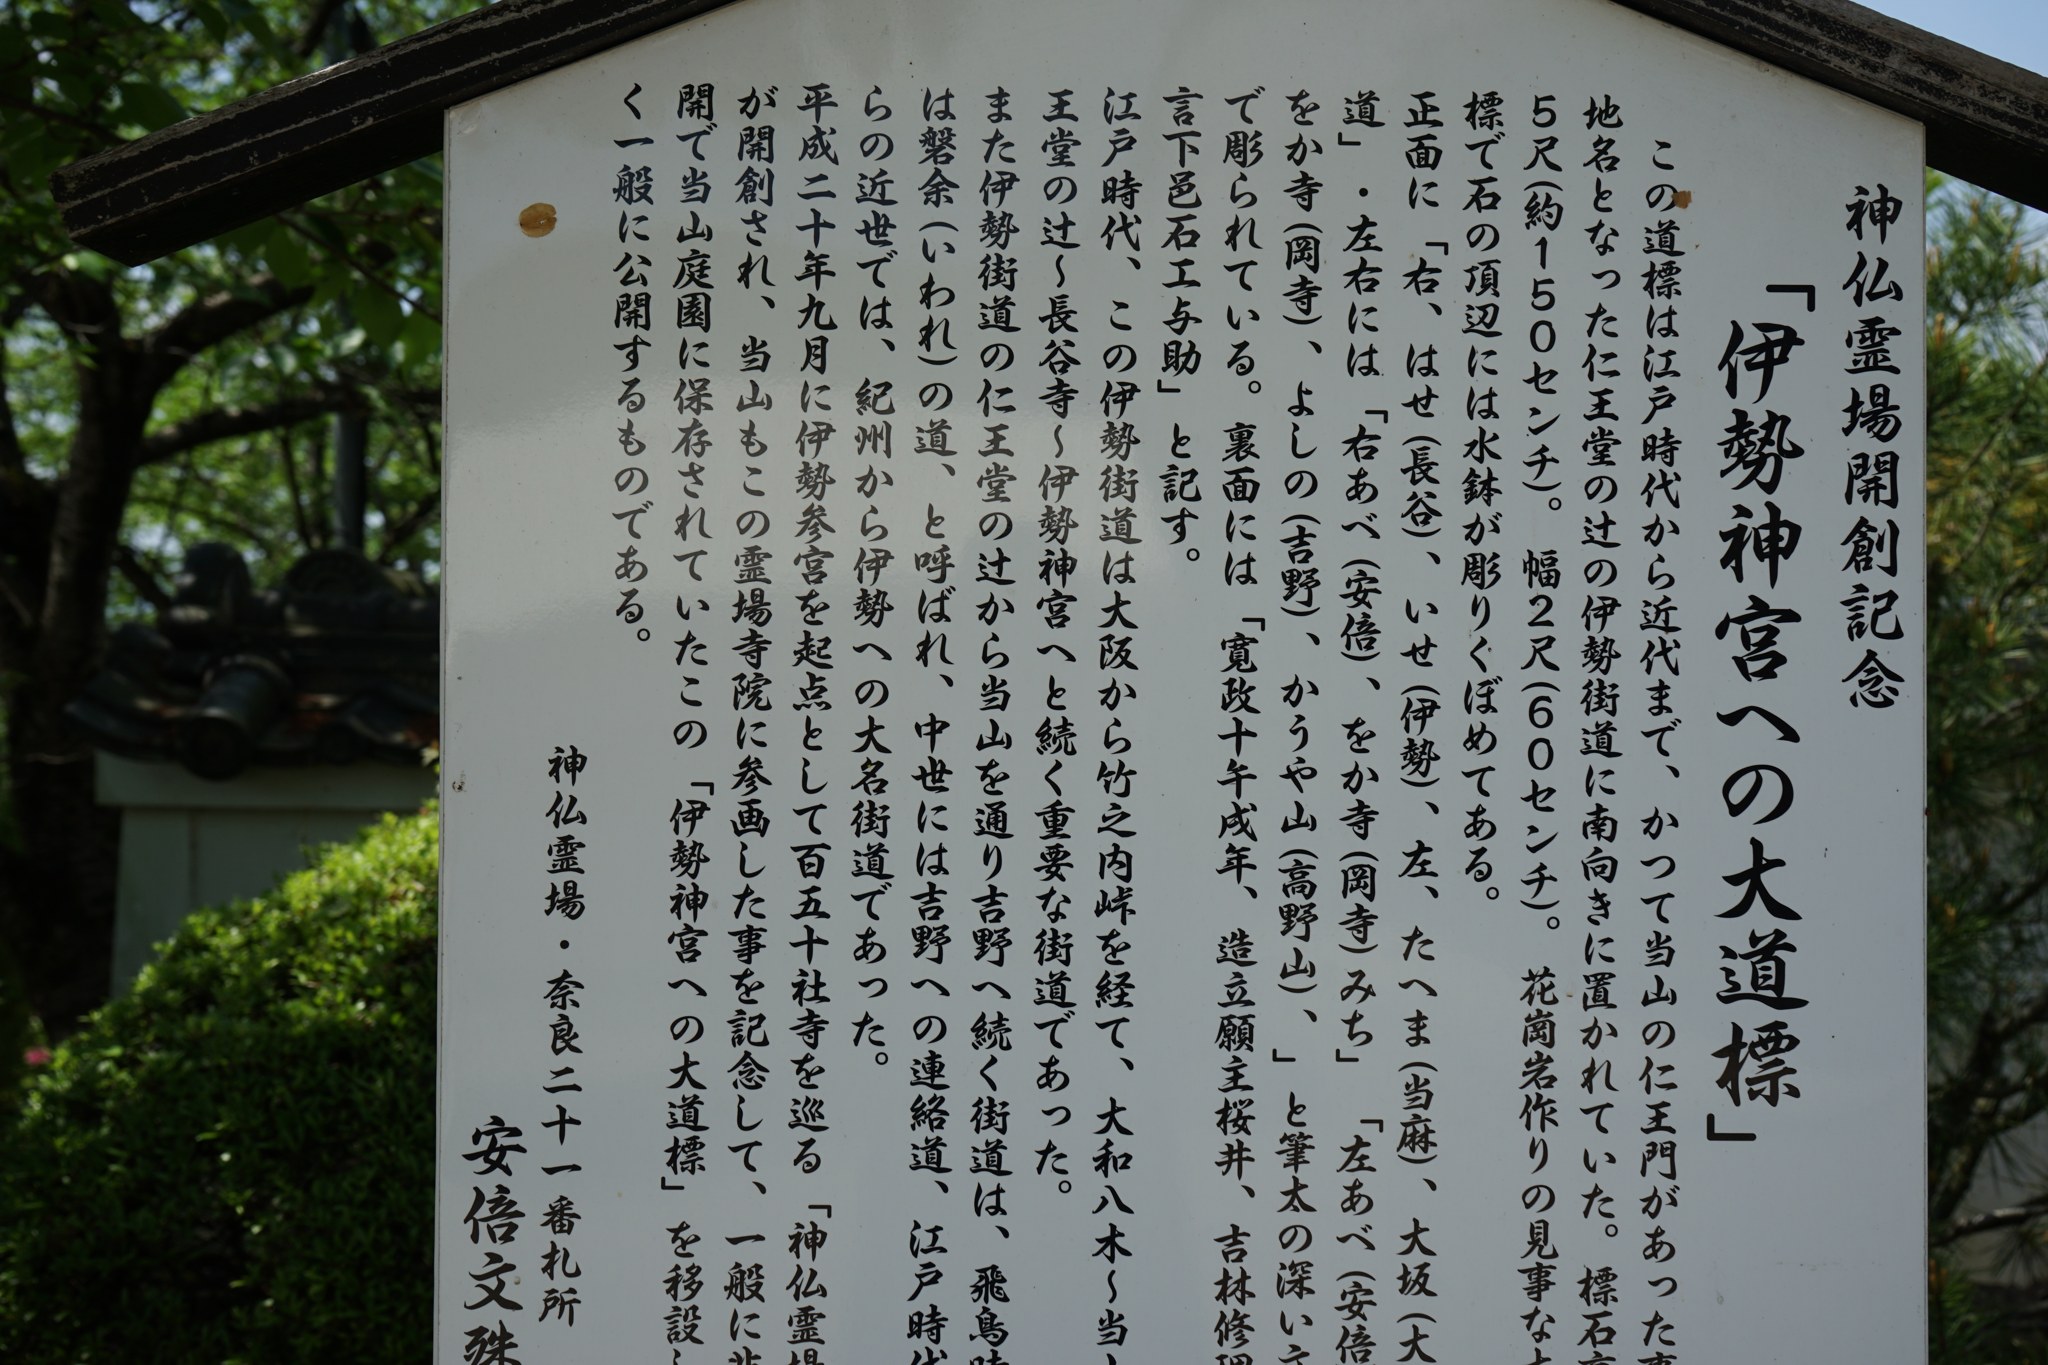 神仏霊場開創記念
「伊勢神宮への大道標」
この道標は江戸時代から近代まで、かつて当山の仁王門があった事
地名となった仁王堂の辻の伊勢街道に南向きに置かれていた。標石高
5尺(約150センチ)。幅2尺(60センチ)。花崗岩作りの見事な大
標で石の頂辺には水鉢が彫りくぼめてある。
正面に「右、はせ(長谷)、いせ(伊勢)、左、たへま(当麻)、大坂(大
道」・左右には「右あべ(安倍)、をか寺(岡寺)みち」「左あべ(安倍
をか寺(岡寺)、よしの(吉野)、かうや山(高野山)、」と筆太の深い文
で彫られている。裏面には「寛政十午戌年、造立願主桜井、吉林修理
言下邑石工与助」と記す。
江戸時代、この伊勢街道は大阪から竹之内峠を経て、大和八木～当
王堂の辻～長谷寺～伊勢神宮へと続く重要な街道であった。
また伊勢街道の仁王堂の辻から当山を通り吉野へ続く街道は、飛鳥時
は磐余(いわれ)の道、と呼ばれ、中世には吉野への連絡道、江戸時代
らの近世では、紀州から伊勢への大名街道であった。
平成二十年九月に伊勢参宮を起点として百五十社寺を巡る「神仏霊場
が開創され、当山もこの霊場寺院に参画した事を記念して、一般に非
開で当山庭園に保存されていたこの「伊勢神宮への大道標」を移設し
く一般に公開するものである。
神仏霊場・奈良二十一番札所
安倍文殊